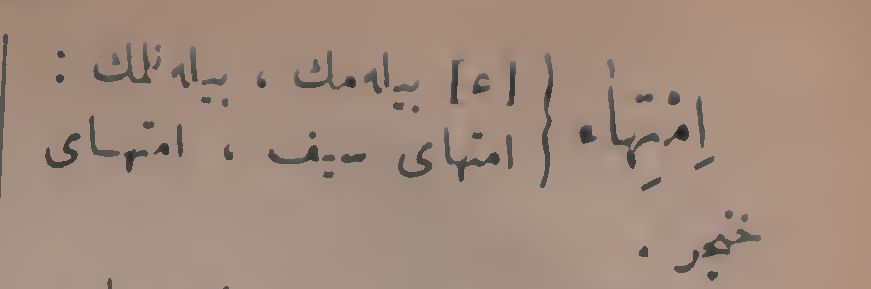 اِمْتِهَاء } [ع] بيله‌مك ، بيله‌نمك :
امتهای سيف ، امتهـای
خنجر .